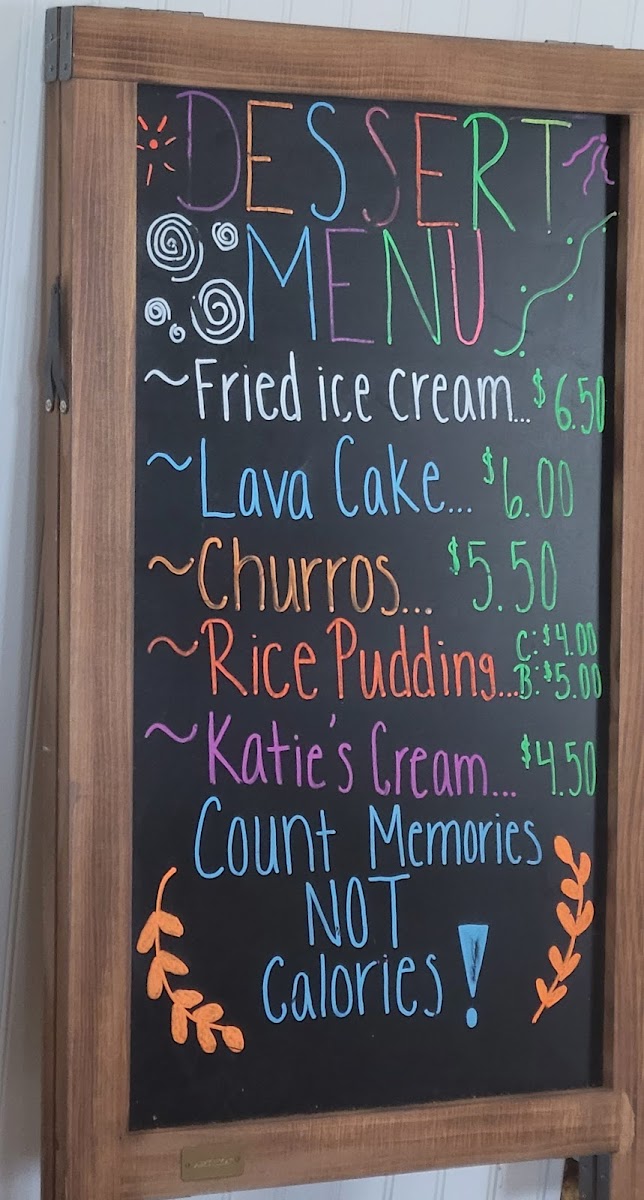 DESSERT
MENU
~Fried ice cream...$6.50
~Lava Cake...$6.00
~Churros...$5.50
~Rice Pudding...C:$4.00
B:$5.00
~Katie's Cream...$4.50
Count Memories
NOT
Calories!